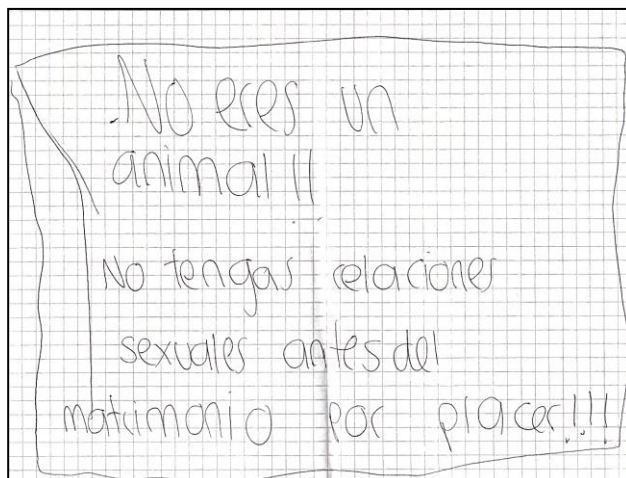 .No eres un
animal!!
No tengas relaciones
sexuales antes del
matrimonio por placer!!!